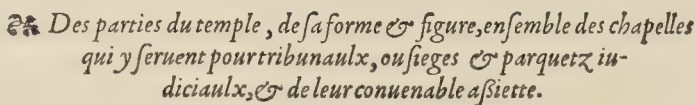 ❧ Des parties du temple, de ſa forme & figure, enſemble des chapelles
qui y ſeruent pour tribunaulx, ou ſieges & parquetz iu-
diciaulx, & de leur conuenable aßiette.